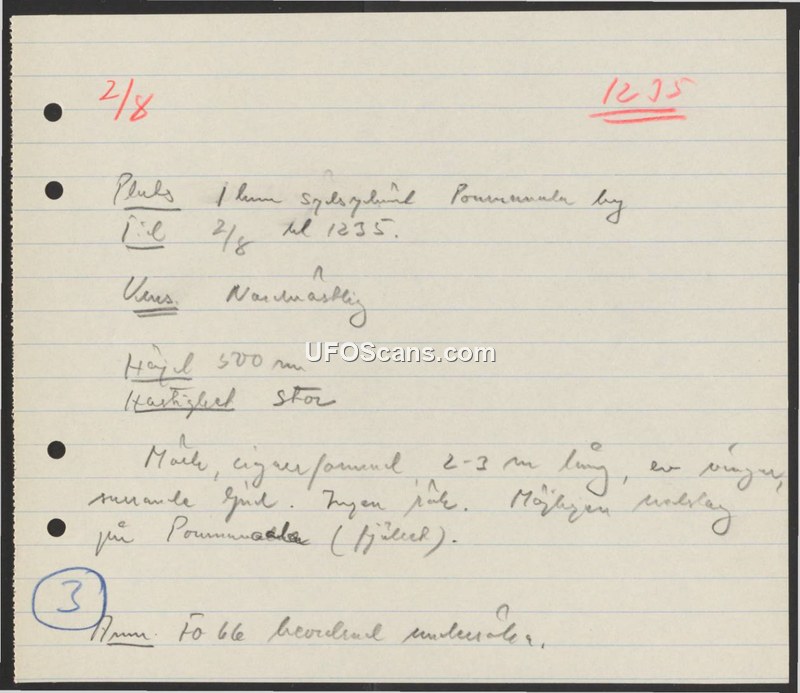 2/8 1235
Plats 1 km sydsydväst Pounuvuoma by
Tid 2/8 kl 1235.
Kurs. Nordvästlig
Höjd 500 m
UFOScans.com
Hastighet Stor
Mörk, cigarrformad 2-3 m lång, ev vingar,
surrande ljud. Ingen rök. Möjligen nedslag
på (fjället).
3
Anm. Fo 66 beordrad undersöka.